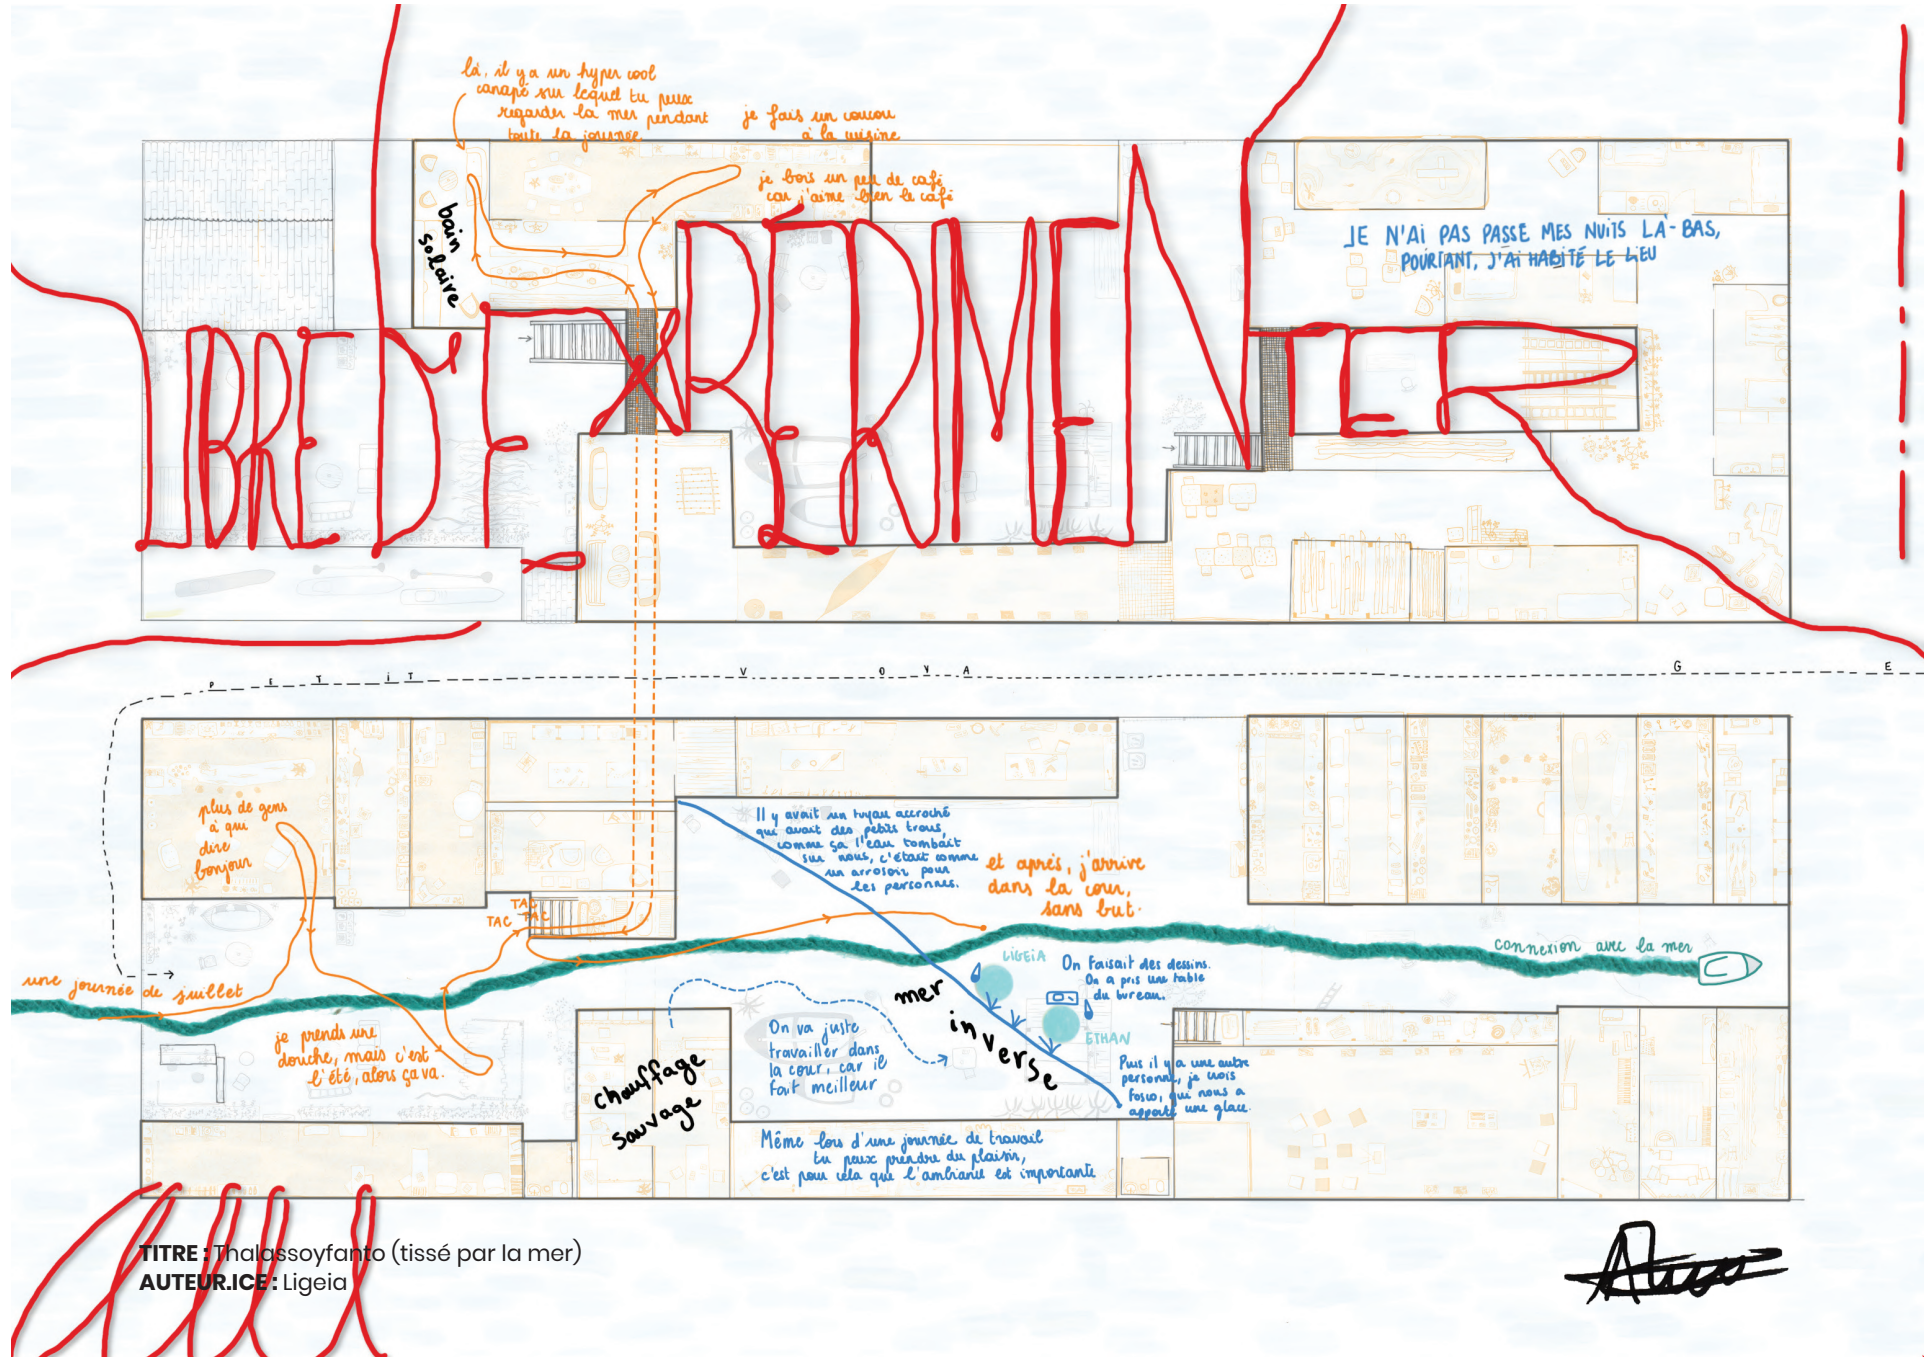 là, il y a un hyper cool
canapé sur lequel tu peux
regarder la mer pendant
toute la journée.
je fais un coucou
à la cuisine
je bois un peu de café
car j'aime bien le café
bain
solaire
JE N'AI PAS PASSÉ MES NUITS LÀ-BAS,
POURTANT, J'AI HABITÉ LE LIEU
IBRE D'EXPÉRIMENTER
PETIT VOYAGE
plus de gens
à qui
dire
bonjour
TAC
TAC TAC
Il y avait un tuyau accroché
qui avait des petits trous,
comme ça l'eau tombait
sur nous, c'était comme
un arrosoir pour
les personnes.
et après, j'arrive
dans la cour,
sans but.
connexion avec la mer
une journée de juillet
je prends une
douche, mais c'est
l'été, alors ça va.
LIGEIA
On faisait des dessins.
On a pris une table
du bureau.
mer
inverse
ETHAN
On va juste
travailler dans
la cour, car il
fait meilleur
chauffage
sauvage
Puis il y a une autre
personne, je crois
Fosco, qui nous a
apporté une glace.
Même lors d'une journée de travail
tu peux prendre du plaisir,
c'est pour cela que l'ambiance est importante
TITRE : Thalassoyfanto (tissé par la mer)
AUTEUR.ICE : Ligeia